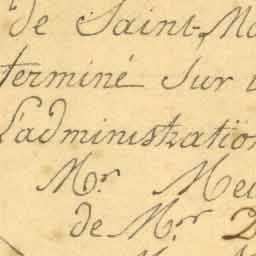 de Saint-M
terminé sur
L'administration
Mr. Me
de Mr.